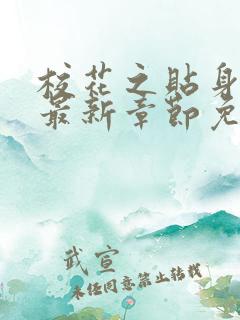 校花之贴身
最新章节免
武宣
未经同意禁止转载